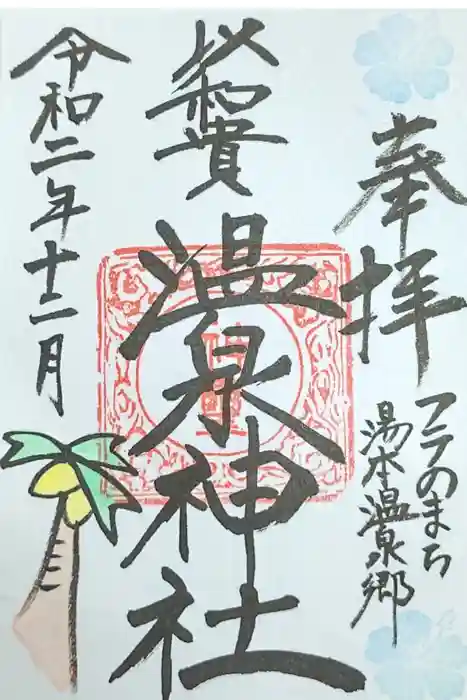 奉拝
フラのまち
湯本温泉郷
以和貴
温泉神社
令和二年十二月